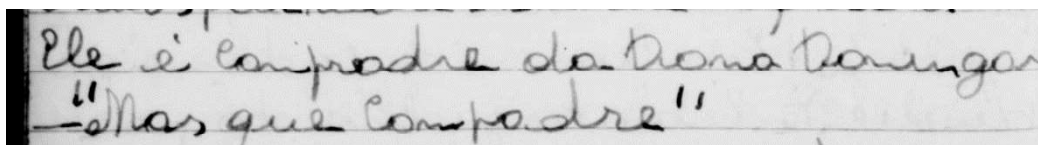 Ele é Compadre da Dona Domingas
–"Mas que Compadre"